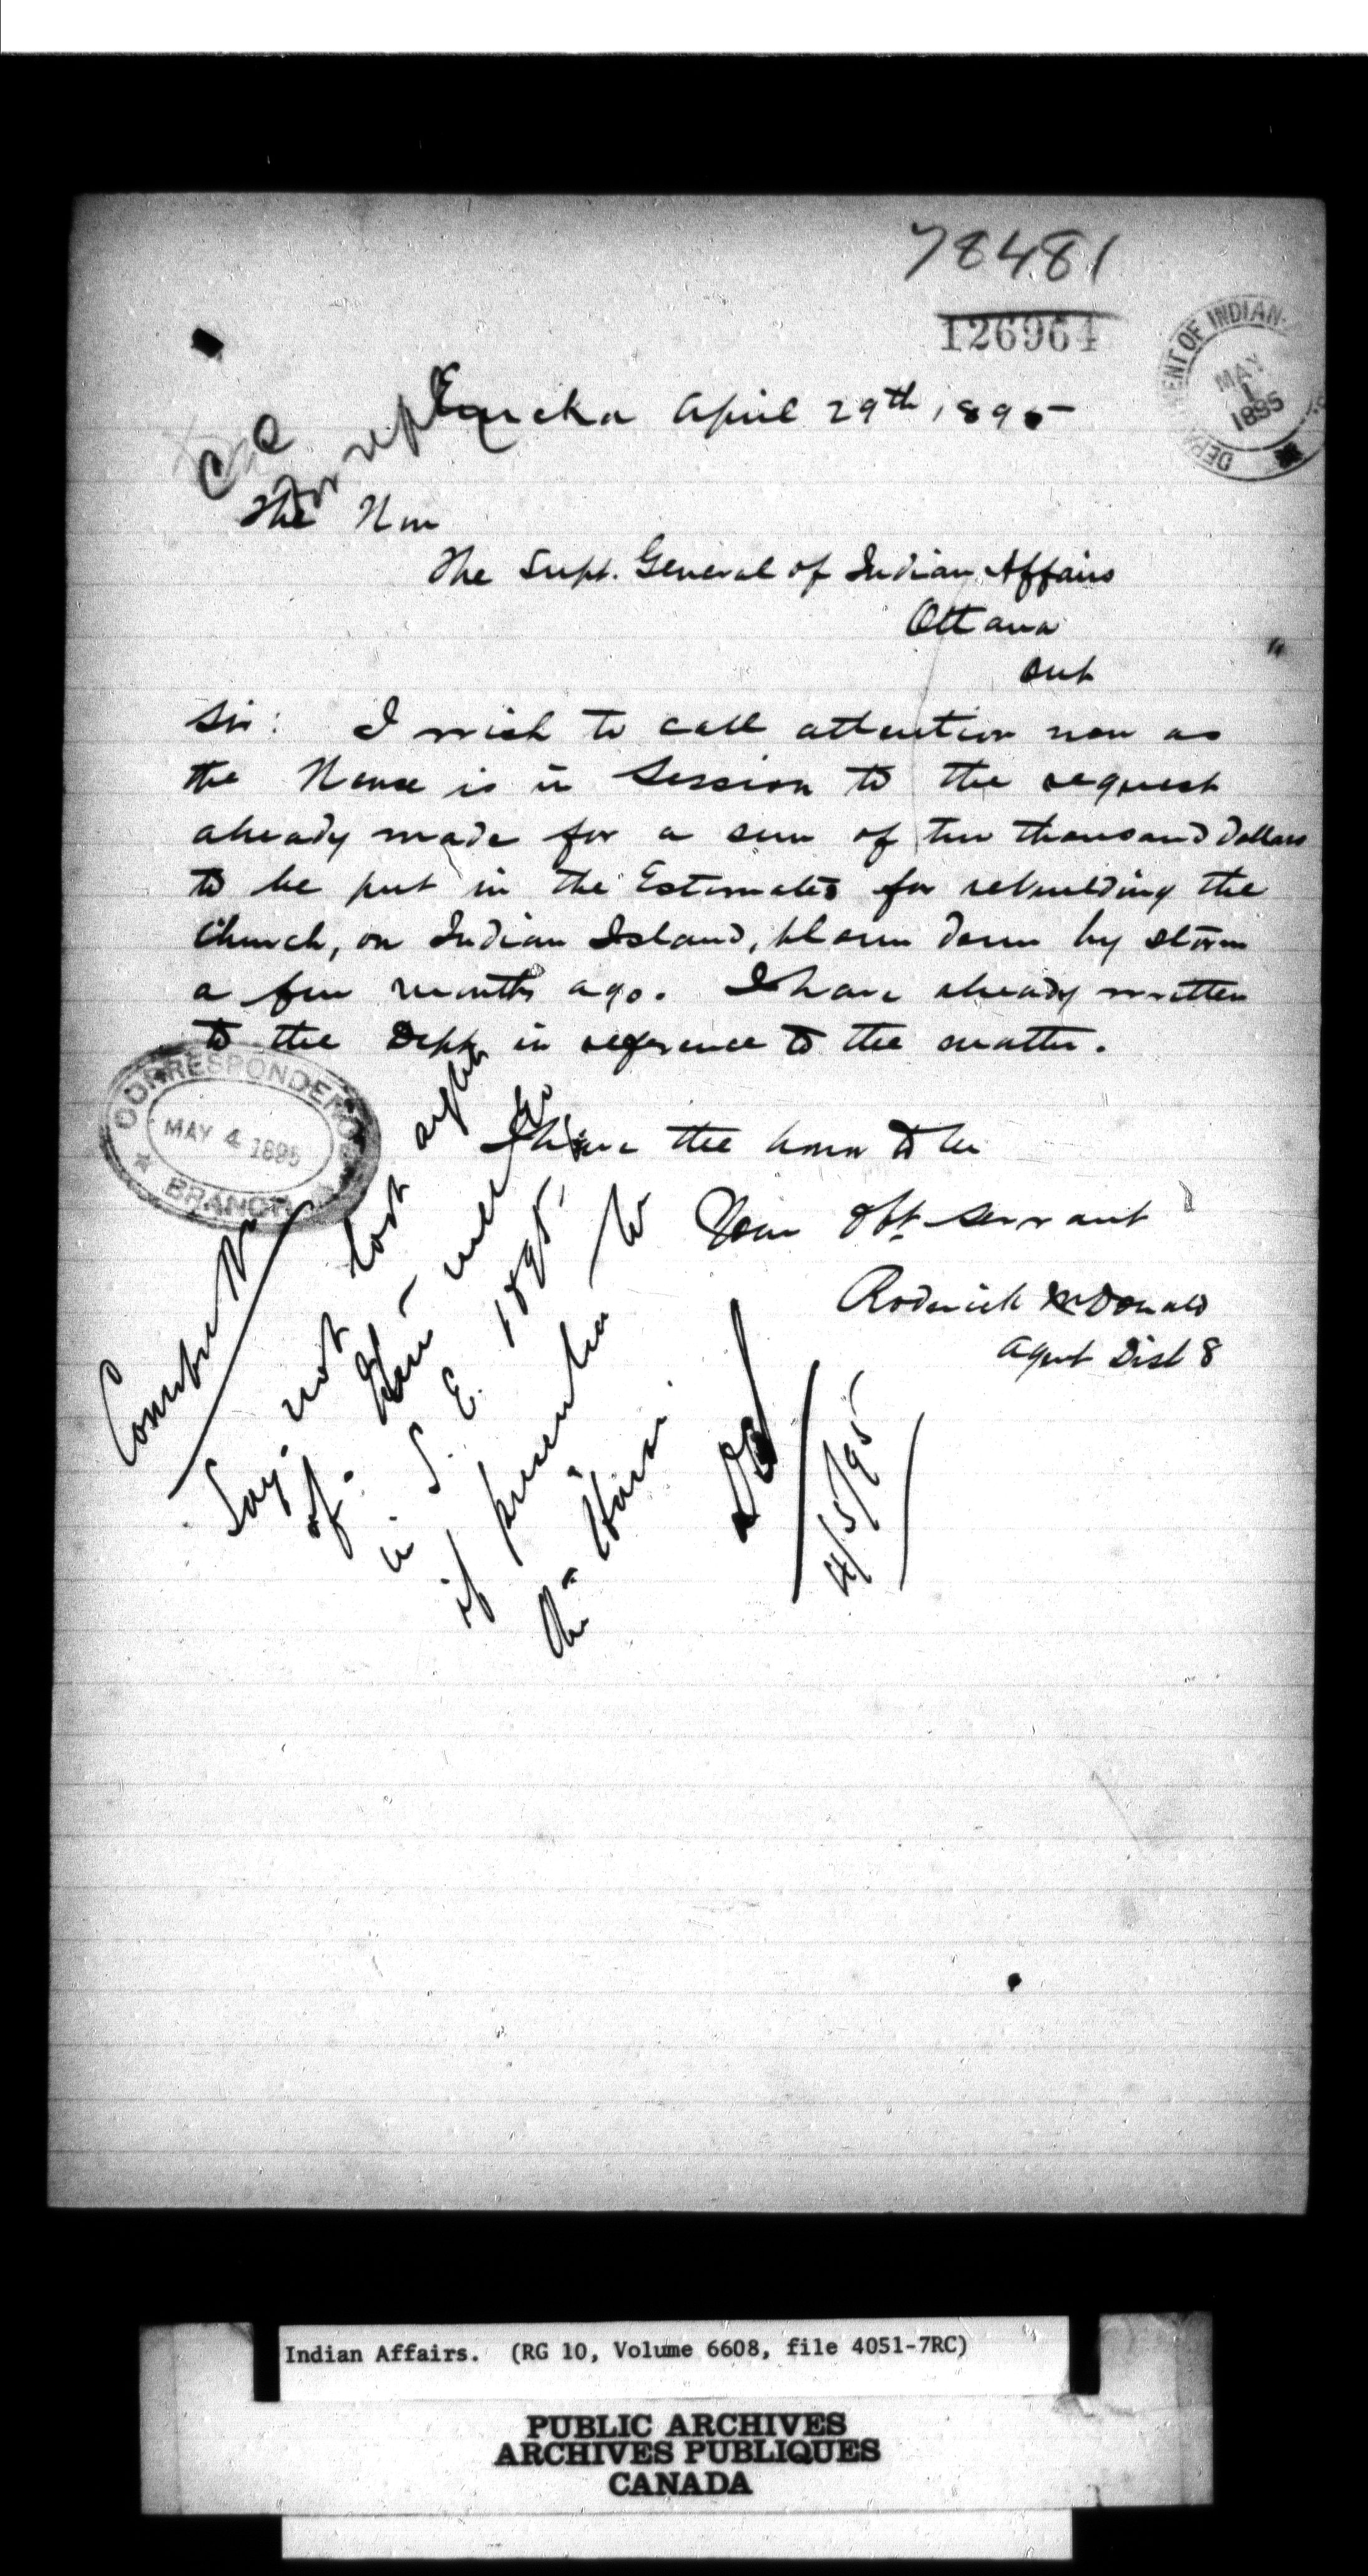 78481
126964
DEPARTMENT OF INDIAN
MAY
1
1895
Eureka April 29th, 1895
The Hon
The Supt. General of Indian Affairs
Ottawa
Ont
Sir: I wish to call attention now as
the House is in Session to the request
already made for a sum of two thousand dollars
to be put in the Estimates for rebuilding the
Church, on Indian Island, blown down by storm
a few months ago. I have already written
to the Dept in reference to the matter.
I have the honor to be
Your Obt servant
Roderick McDonald
Agent Dist 8
CORRESPONDENCE
MAY 4 1895
BRANCH
Say not lost sight
of. Item will go
in S. E. 1895
if presented to
the House
4/5/95
Indian Affairs. (RG 10, Volume 6608, file 4051-7RC)
PUBLIC ARCHIVES
ARCHIVES PUBLIQUES
CANADA